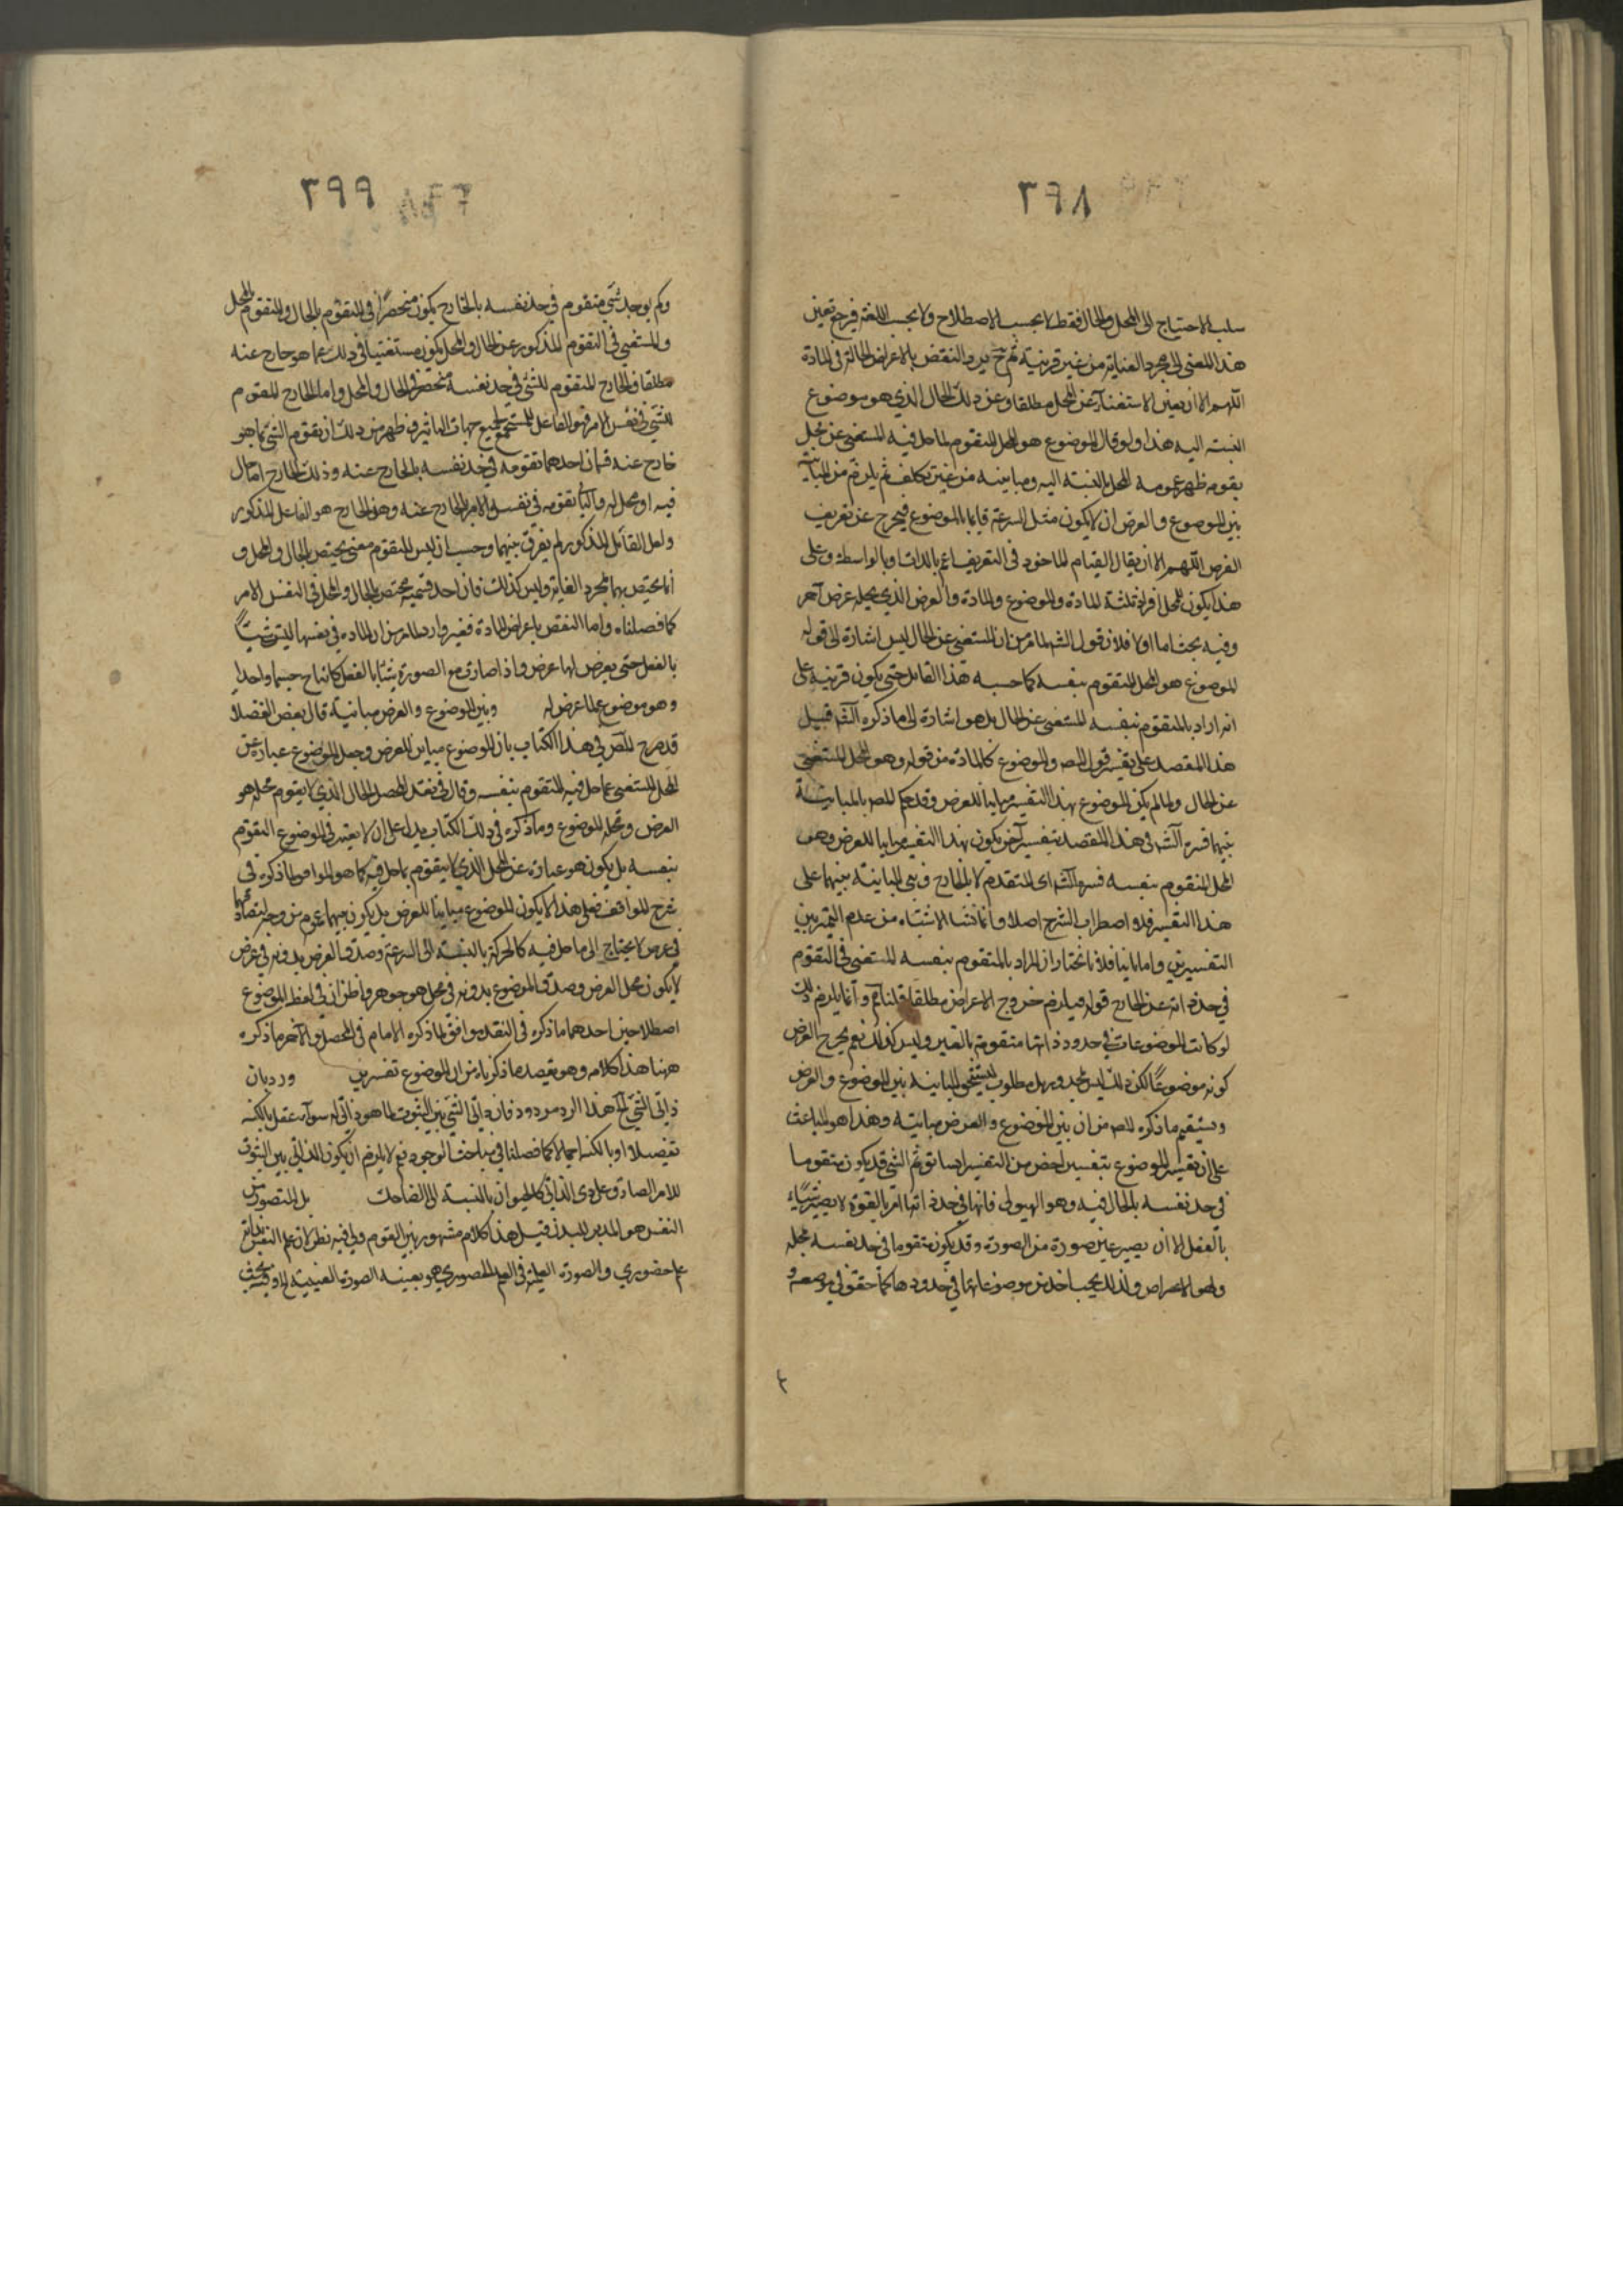 ٣٩٨
سلب الاحتياج الى المحل والحال فقط لا بحسب الاصطلاح ولا بحسب اللغة فرجع تعين
هذا المعنى الى مجرد العناية من غير قرينة ثم ح يرد النقض بالاعراض الحالة فى المادة
اللهم الا ان يعين الاستغناء عن المحل مطلقا وعن ذلك الحال الذي هو موضوع
النسبة اليه هذا ولو قال الموضوع هو المحل المتقوم لما حل فيه المستغنى عن محل
يقومه ظهر عمومه للمحل بالنسبة اليه ومباينه من غير تكلف ثم يلزم من المباينة
بين الموضوع والعرض ان لا يكون مثل السرعة قايما بالموضوع فيخرج عن تعريف
العرض اللهم الا ان يقال القيام الماخوذ فى التعريف اعم بالذات او بالواسطة وعلى
هذا يكون للمحل افراد ثلثة المادة والموضوع والمادة والعرض الذي يحله عرض آخر
وفيه بحث اما اولا فلان قول الشه لما مر من ان المستغنى عن الحال ليس اشارة الى قوله
الموضوع هو المحل المتقوم بنفسه كما حسبه هذا القايل حتى يكون قرينه على
انه اراد بالمتقوم بنفسه المستغنى عن الحال بل هو اشارة الى ما ذكره الشه قبيل
هذا المقصد على تفسير قول المص والموضوع كالمادة من قوله وهو المحل المستغنى
عن الحال ولما لم يكن الموضوع بهذا التفسير مباينا للعرض وقد حكم المص بالمباينة
بينهما فسره الشه فى هذا المقصد بتفسير آخر يكون بهذا التفسير مباينا للعرض وهو
المحل المتقوم بنفسه فسره الشه اى المتقدم لا بالخارج وبنى المباينة بينهما على
هذا التفسير فلا اضطراب الشرح اصلا وانما نشا الاشتباه من عدم التميز بين
التفسيرين واما ثانيا فلانا نختار ان المراد بالمتقوم بنفسه المستغنى فى التقوم
في حد ذاته عن الخارج قوله فيلزم خروج الاعراض مطلقا قلنا ثم وانما يلزم ذلك
لو كانت الموضوعات فى حدود ذاتها متقومة بالغير وليس كذلك نعم يخرج العرض
كونه موضوعًا لكن ذلك ليس بمحذور بل مطلوب ليستقيم المباينة بين الموضوع والعرض
ويستقيم ما ذكره المص من ان بين الموضوع والعرض مباينة وهذا هو الباعث
على ان تفسير الموضوع بتفسير اخص من التفسير السابق ثم الشى قد يكون متقوما
في حد نفسه بالحال فيه وهو الهيولى فانها في حد ذاتها امر بالقوة لا يصير شيًا
بالفعل الا ان يصير عين صورة من الصورة وقد يكون متقوما فى حد نفسه بمحله
وهو الاعراض ولذلك يجب اخذ من موضوعاتها في حدودها كما حقق في موضعه و
٣٩٩
ولم يوجد شي متقوم في حد نفسه بالخارج يكون منحصرًا فى المتقوم بالحال والمتقوم بالمحل
والمستغنى فى التقوم المذكور عن الحال والمحل يكون مستغنيا فى ذلك عما هو خارج عنه
مطلقا والخارج المتقوم للشئ في حد نفسه منحصر فى الحال والمحل واما الخارج المقوم
للشي في نفس الامر فهو الفاعل المستجمع لجميع جهات التاثير فظهر من ذلك ان تقوم الشئ بما هو
خارج عنه قسمان احدهما تقومه في حد نفسه بالخارج عنه وذلك الخارج اما حال
فيه او محل له وثانيا تقومه فى نفس الامر بالخارج عنه وهذا الخارج هو الفاعل المذكور
ولعل القائل المذكور لم يفرق بينهما وحسب ان ليس للتقوم معنى يختص بالحال والمحل و
انما يختص بهما بمجرد العناية وليس كذلك فان احد قسميه مختص بالحال والمحل فى النفس الامر
كما فصلناه واما النقض باعراض المادة فغير وارد لما مر من ان المادة في نفسها ليست شيئًا
بالفعل حتى يعرض لها عرض واذا صارت مع الصورة شيئا بالفعل كانتا ح جسما واحدا
وهو موضوع لما عرض له وبين الموضوع والعرض مباينة قال بعض الفضلا
قد صرح المص في هذا الكتاب بان الموضوع مباين للعرض وجعل الموضوع عبارة عن
المحل المستغنى عما حل فيه المتقوم بنفسه وقال فى نقد المحصل الحال الذي لا يقوم محله هو
العرض ومحله الموضوع وما ذكره فى ذلك الكتاب يدل على ان لا يعتبر فى الموضوع التقوم
بنفسه بل يكون هو عبارة عن المحل الذي لا يتقوم بما حل فيه كما هو الموافق لما ذكره فى
شرح المواقف فعلى هذا لا يكون الموضوع مباينا للعرض بل يكون بينهما عموم من وجه لتصادقهما
في عرض لا يحتاج الى ما حل فيه كالحركة بالنسبة الى السرعة وصدق العرض بدونه في عرض
لا يكون محل العرض وصدق الموضوع بدونه في محل هو جوهر واظن ان في لفظ الموضوع
اصطلاحين احدهما ما ذكره فى النقد موافق لما ذكره الامام فى المحصل والآخر ما ذكره
ههنا هذا كلامه وهو يعضد ما ذكرناه من ان للموضوع تفسرين ورد بان
ذاتي الشي الخ هذا الرد مردود فان ذاتي الشي بين الثبوت لما هو ذاتي له سواء عقل بالكنه
تفصيلا او بالكنه اجمالا كما فصلنا في مباحث الوجود نعم لا يلزم ان يكون الذاتي بين الثبوت
للامر الصادق على ذى الذاتي كالحيوان بالنسبة الى الضاحك بل المتصور من
النفس هو المدبر للبدن قيل هذا كلام مشهور بين القوم ولي فيه نظر لان علم النفس بذاته
علم حضوري والصورة العلمية فى العلم الحضوري هو بعينه الصورة العينية